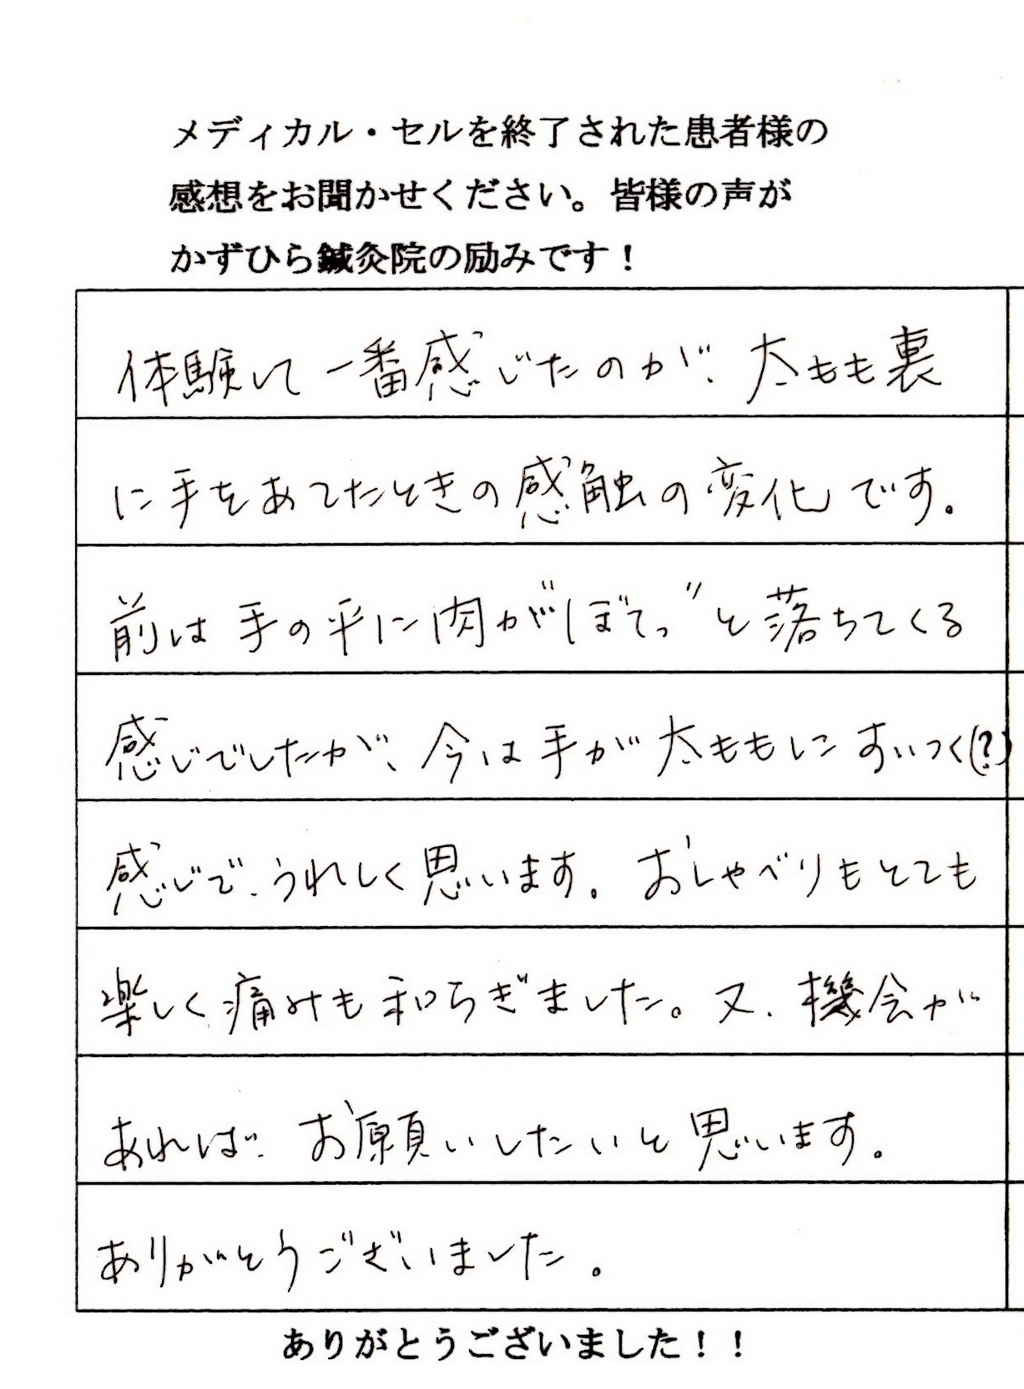 メディカル・セルを終了された患者様の
感想をお聞かせください。皆様の声が
かずひら鍼灸院の励みです！
体験して一番感じたのが、太もも裏
に手をあてたときの感触の変化です。
前は手の平に肉が“ぼてっ”と落ちてくる
感じでしたが、今は手が太ももにすいつく(?)
感じで、うれしく思います。おしゃべりもとても
楽しく痛みも和らぎました。又、機会が
あれば、お願いしたいと思います。
ありがとうございました。
ありがとうございました！！